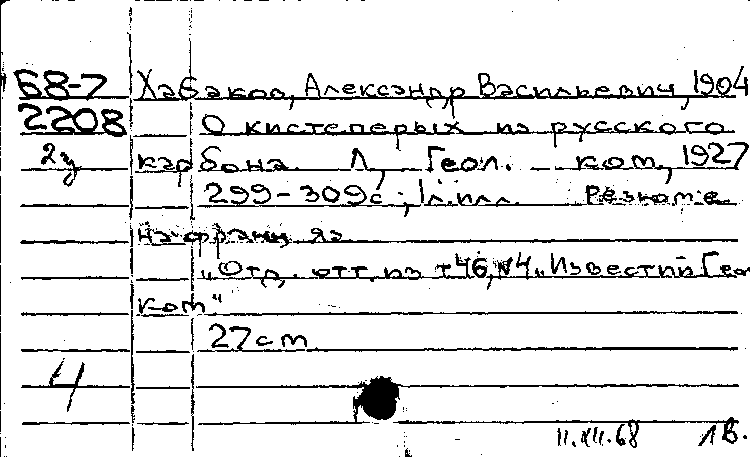 68-7 Хабаков, Александр Васильевич, 1904
2208 О кистеперых из русского
2э карбона Л, Геол. ком., 1927
299-309с.; 1л.илл. Резюме
на франц яз
„Отд. отт. из т46, №4 „Известий Геол
ком“
27cm
4
11.XII.68 ЛВ.